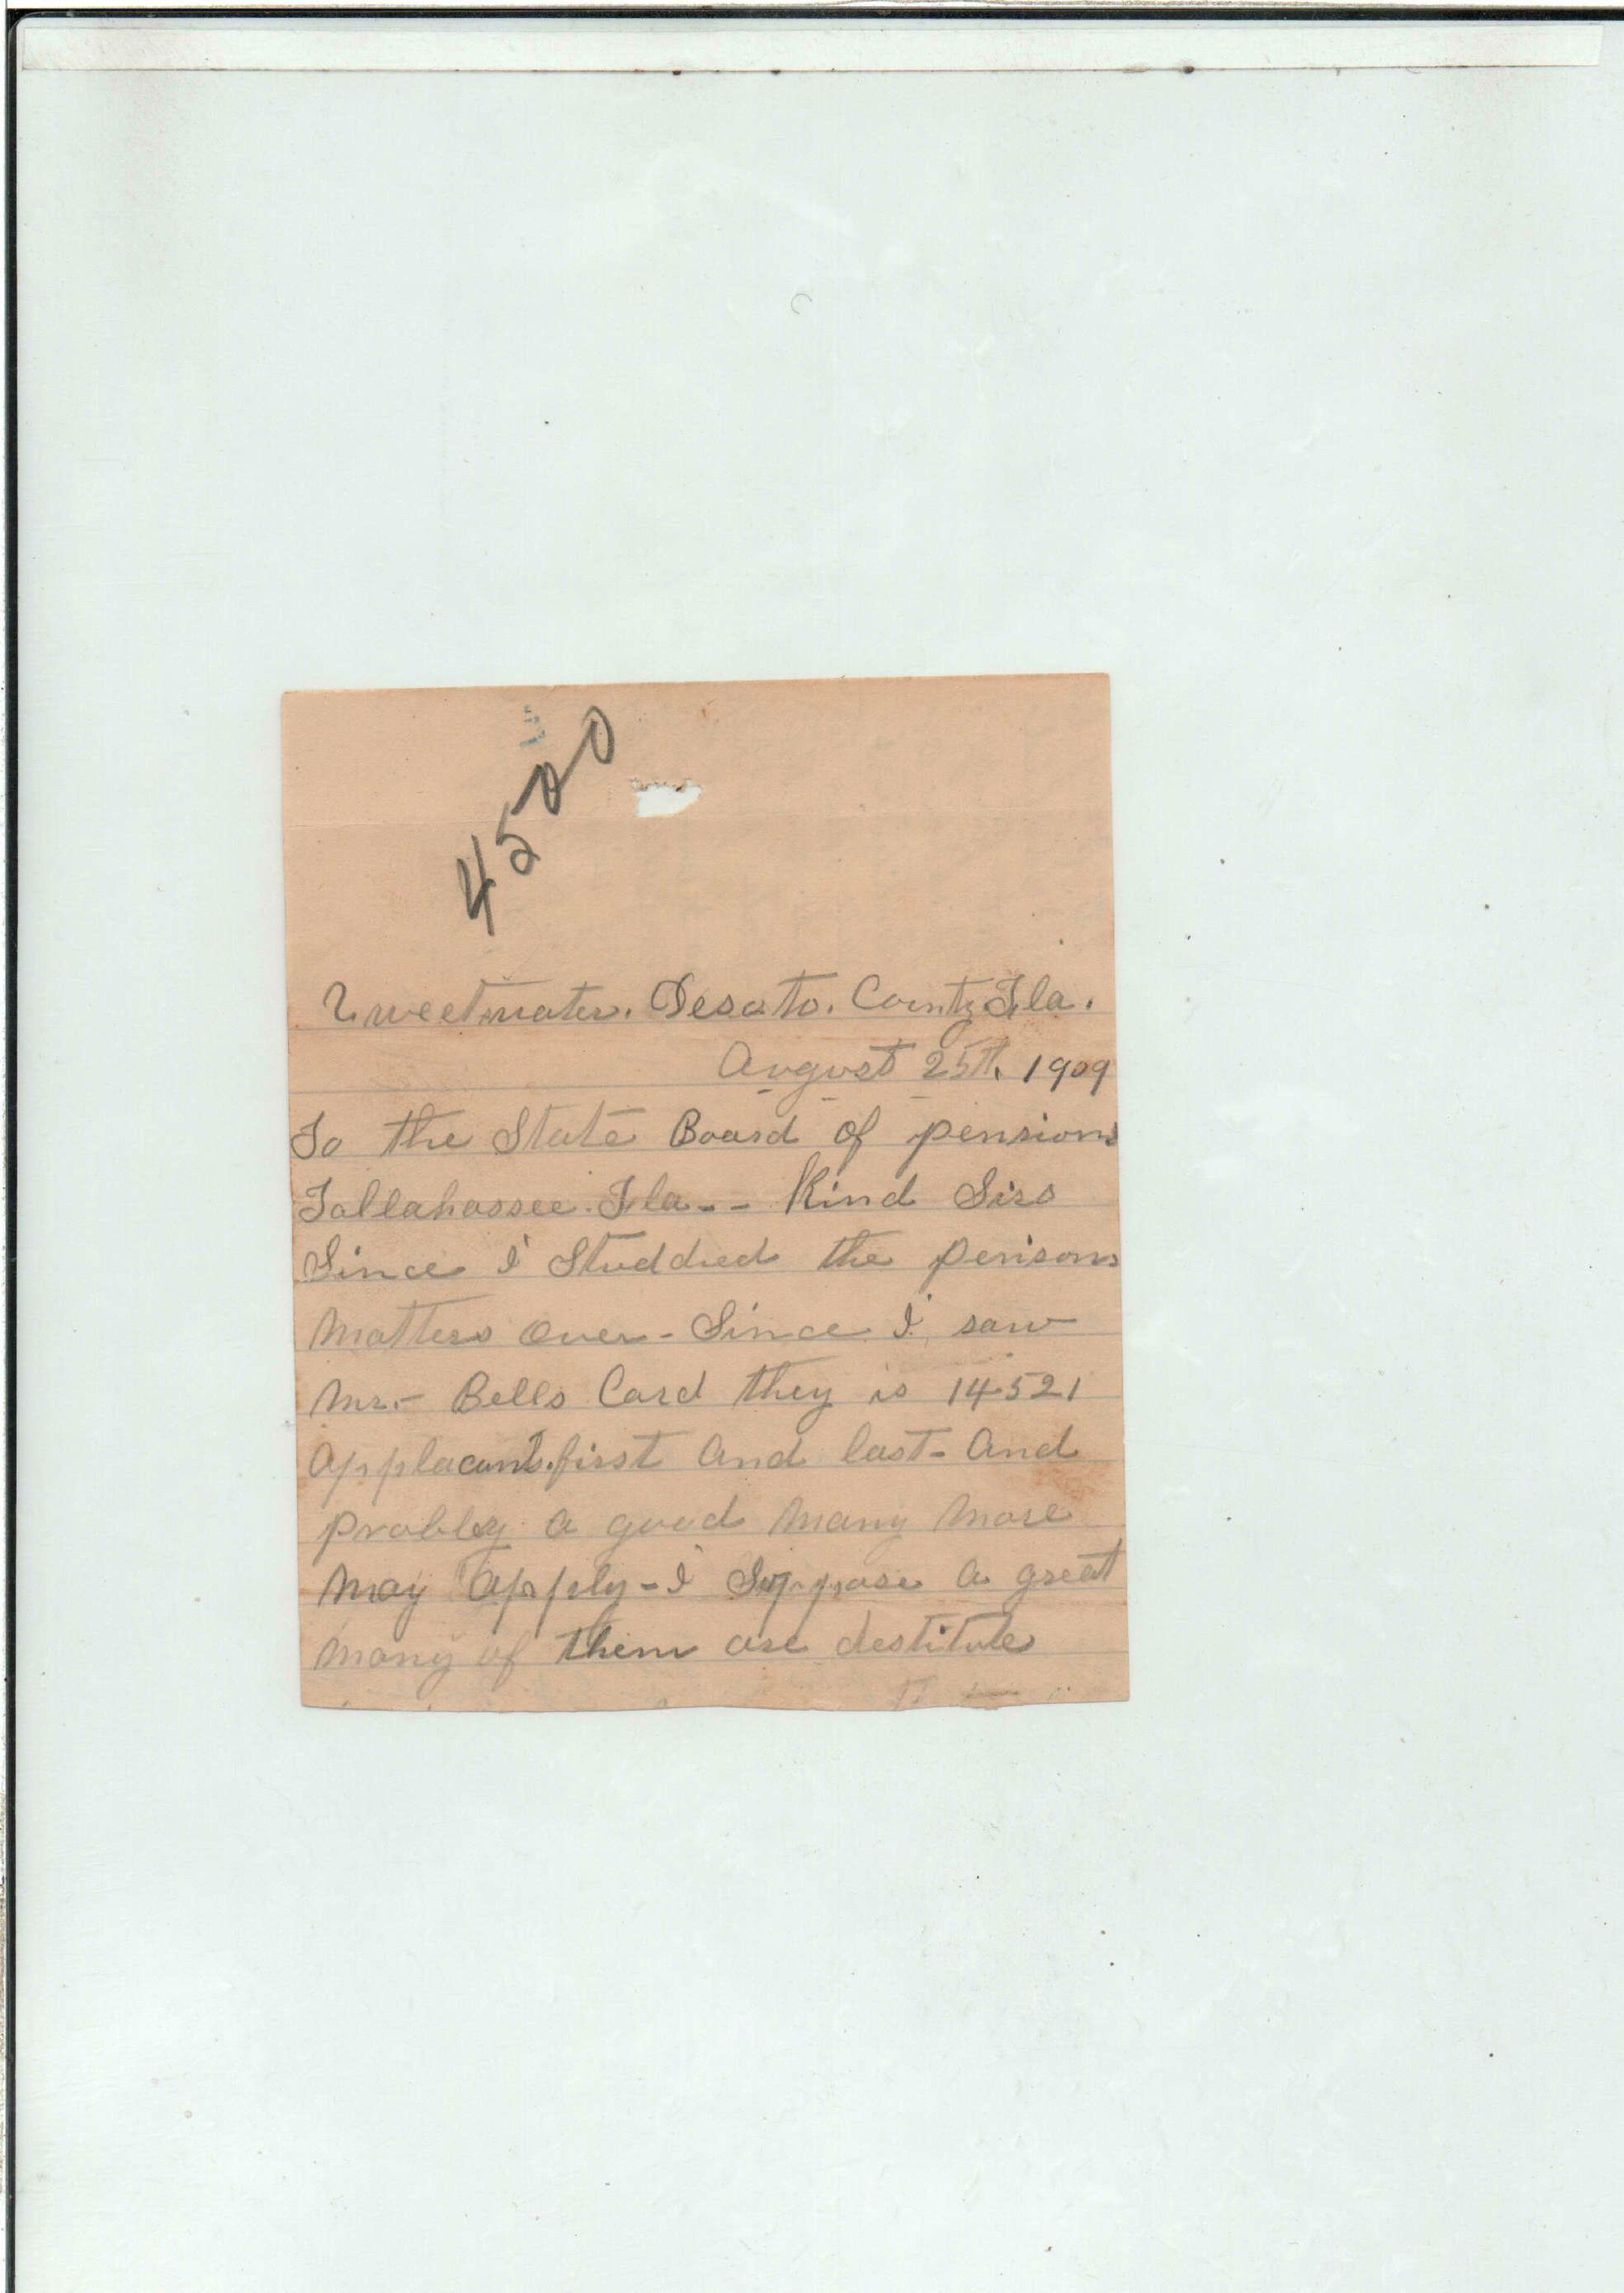 4500
Sweetwater. Desoto. County Fla.
August 25th. 1909
To the State Board of pensions
Tallahassee. Fla-- Kind Sirs
Since I Studdied the penisons
Matters over - Since I saw
Mr.- Bells Card they is 14521
applacants. first and last - and
probley a good many more
may apply - I Suppose a great
many of them are destitute